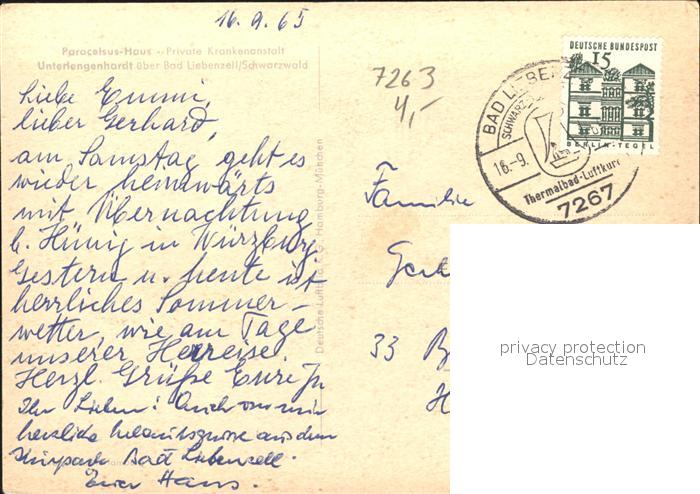 16.9.65
Paracelsus-Haus - Private Krankenanstalt
Unterlengenhardt über Bad Liebenzell/Schwarzwald
Liebe Emmi,
lieber Gerhard,
am Samstag geht es
wieder heimwärts
mit Übernachtung
b. Hünig in Würzburg.
Gestern u. heute ist
herrliches Sommer-
wetter, wie am Tage
unserer Herreise.
Herzl. Grüße Eure
Ihr Lieben! Auch von mir
herzliche aus dem
Kurpark Bad Liebenzell.
Euer Hans.
Hamburg-München
7263
4,-
DEUTSCHE BUNDESPOST
15
BERLIN-TEGEL
BAD
16.-9.
Thermalbad-Luftkurort
7267
Familie
33 B
H
privacy protection
Datenschutz